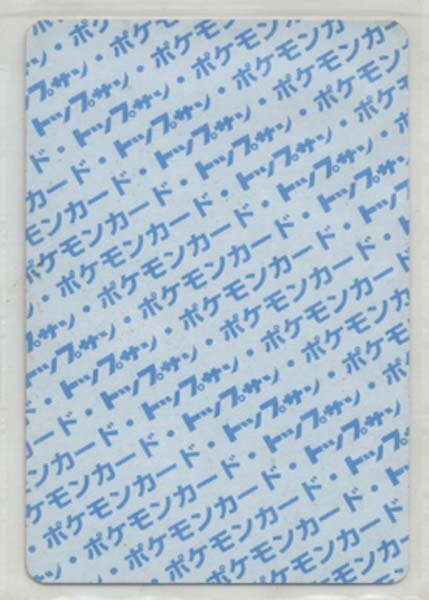 ・ポケモン
プサン・ポケモンカー
トップサン・ポケモンカ
ド・トップサン・ポケモン
カード・トップサン・ポケモ
モンカード・トップサン・ポ
ケモンカード・トップサン・
・ポケモンカード・トップサン
サン・ポケモンカード・トッ
プサン・ポケモンカード・
トップサン・ポケモンカード
・トップサン・ポケモンカー
ド・トップサン・ポケモン
カード・トップサン・ポケモ
ンカード・トップサン・ポ
ケモンカード・トップサン・
・ポケモンカード・トップサン
・ポケモンカード・
ポケモンカード
ポケモン